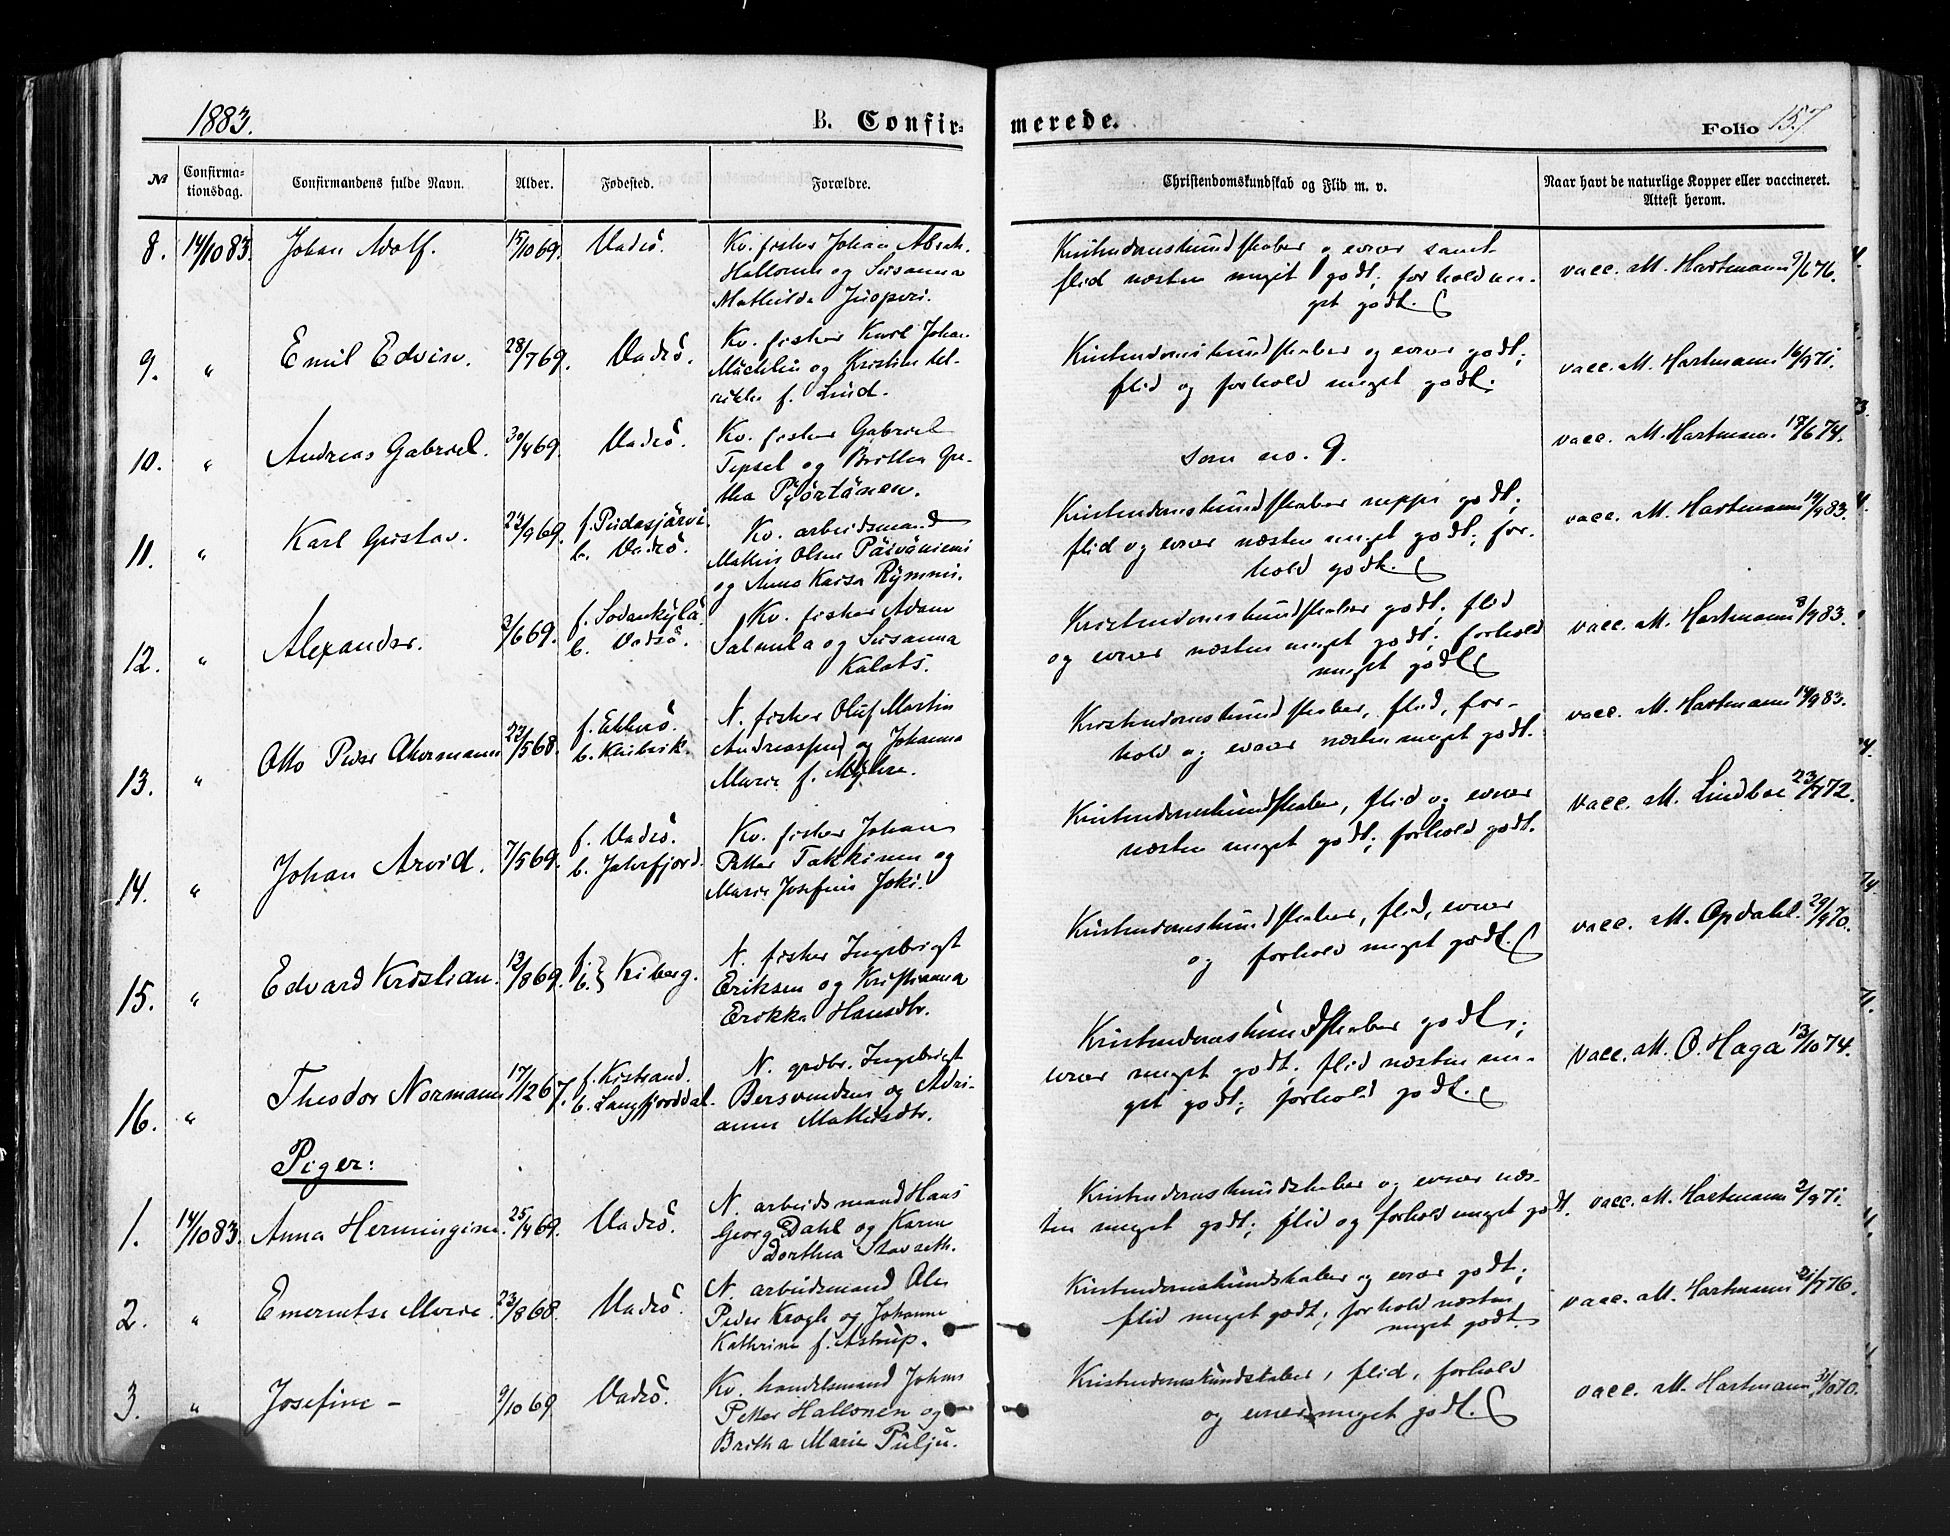 1883.
B. Confirmerede.
Folio 157
№ Confirmationsdag. Confirmandens fulde Navn. Alder. Fødested. Forældre. Christendomskundskab og Flid m. v. Naar havt de naturlige Kopper eller vaccineret. Attest herom.
8. 14/10 83. Johan Adolf. 15/10 69. Vadsö. Kv. fisker Johan Abrah. Kristendomskundskaber og evner samt vacc. M. Hartmann 9/6 76.
og Susanna flid næsten meget godt; forhold me-
Mathilda get godt.
9. " Emil Edvin. 28/7 69. Vadsö. Kv. fisker Karl Johan Kristendomskundskaber og evner godt; vacc. M. Hartmann 16/9 71.
og Kristine Hel- flid og forhold meget godt.
f. Lund.
10. " Andreas Gabriel. 30/4 69. Vadsö. Kv. fisker Gabriel som no. 9. vacc. M. Hartmann 17/6 74.
og Britha Gre-
tha
11. " Karl Gustav. f. Pudasjärvi Kv. arbeidsmand Kristendomskundskaber neppe godt; vacc. M. Hartmann 14/9 83.
b. Vadsö. Mathis Olsen Päiväniemi flid og evner næsten meget godt; for-
og Anna Kaisa hold godt.
12. " Alexander. 3/6 69. f. Sodankylä. Kv. fisker Adam Kristendomskundskaber godt; flid vacc. M. Hartmann 8/9 83.
b. Vadsö. og Susanna og evner næsten meget godt; forhold
meget godt.
13. " Otto Peder 22/5 68. f. Ekkerö. N. fisker Oluf Martin Kristendomskundskaber, flid, for- vacc. M. Hartmann 14/9 83.
og Johanna hold og evner næsten meget godt.
Marie f. Myhre.
14. " Johan Arvid. 7/5 69. f. Vadsö. Kv. fisker Johan Kristendomskundskaber, flid og evner vacc. M. Lindboe 23/7 72.
b. Jakofjord. Petter Takkinen og næsten meget godt; forhold godt.
Marie Josefine Joki.
15. " Edvard Kristian. 13/8 69. f. b. } Kiberg. N. fisker Ingebrigt Kristendomskundskaber, flid, evner vacc. M. Opdahl. 29/9 70.
Eriksen og Kristianna og forhold meget godt.
Erikka Hansdtr.
16. " Theodor Normann 17/12 67. f. Kistrand. N. grdbr. Ingebrigt Kristendomskundskaber godt; vacc. M. O. Haga 13/10 74.
b. Langfjorddal. Bersvendsen og Adri- evner meget godt; flid næsten me-
anna Mathisdtr. get godt; forhold godt.
Piger:
1. 14/10 83. Anna Hermingine. 25/4 69. Vadsö. N. arbeidsmand Hans Kristendomskundskaber og evner næs- vacc. M. Hartmann 2/9 71.
Georg Dahl og Karen ten meget godt; flid og forhold meget godt.
Dorthea Stavseth.
2. " Emerentse Marie. 23/8 68. Vadsö. N. arbeidsmand Ole Kristendomskundskaber og evner godt; vacc. M. Hartmann 21/7 76.
Peder Krogh og Johanne flid meget godt; forhold næsten
Kathrine f. Astrup. meget godt.
3. " Josefine - 9/10 69 Vadsö. Kv. handelsmand Johan Kristendomskundskaber, flid, forhold vacc. M. Hartmann, 31/10 70.
Petter Hallonen og og evner meget godt.
Britha Marie Pulju.